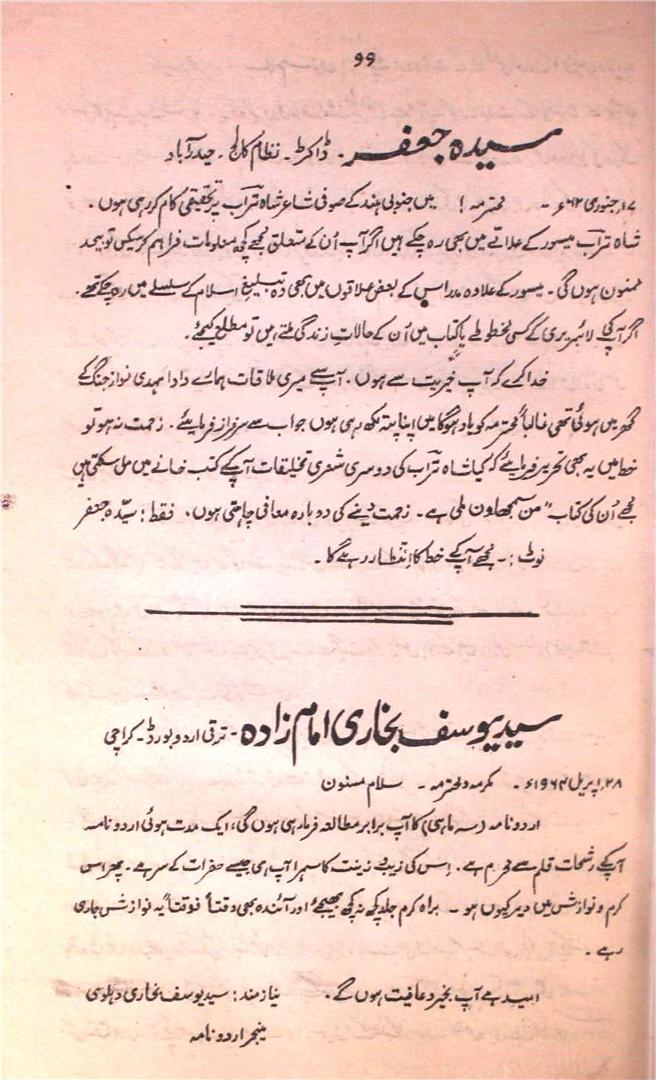 ۹۹
سیدہ جعفر - ڈاکٹر - نظام کالج - حیدرآباد
۱۷ر جنوری ۶۲ء - محترمہ! میں جنوبی ہند کے صوفی شاعر شاہ تراب پر تحقیقی کام کر رہی ہوں.
شاہ تراب میسور کے علاقے میں بھی رہ چکے ہیں اگر آپ اُن کے متعلق مجھے کچھ معلومات فراہم کر سکیں تو بیحد
ممنون ہوں گی - میسور کے علاوہ مدراس کے بعض علاقوں میں بھی وہ تبلیغِ اسلام کے سلسلے میں رہ چکے تھے.
اگر آپکی لائبریری کے کسی مخطوطے یا کتاب میں اُن کے حالات زندگی ملتے ہیں تو مطلع کیجئے.
خدا کرے کہ آپ خیریت سے ہوں. آپ سے میری ملاقات ہمارے دادا مہدی نواز جنگ کے
گھر میں ہوئی تھی غالباً محترمہ کو یاد ہوگا میں اپنا پتہ لکھ رہی ہوں جواب سے سرفراز فرمایئے. زحمت نہ ہو تو
خط میں یہ بھی تحریر فرمایئے کہ کیا شاہ تراب کی دوسری شعری تخلیقات آپکے کتب خانے میں مل سکتی ہیں
مجھے اُن کی کتاب "من سمجھاون ملی ہے - زحمت دینے کی دوبارہ معافی چاہتی ہوں. فقط: سیّدہ جعفر
نوٹ:- مجھے آپکے خط کا اِنتظار رہے گا -
سید یوسف بخاری امام زادہ - ترقی اردو بورڈ - کراچی
۲۸ر اپریل ۱۹۶۴ء - مکرمہ و محترمہ - سلام مسنون
اردو نامہ (سہ ماہی) کا آپ برابر مطالعہ فرما رہی ہوں گی، ایک مدت ہوئی اردو نامہ
آپکے رشحات قلم سے محروم ہے. اِس کی زیب و زینت کا سہرا آپ ہی جیسے حضرات کے سر ہے - پھر اس
کرم و نوازش میں دیر کیوں ہو - براہ کرم جلد کچھ نہ کچھ بھیجئے اور آئندہ بھی وقتاً فوقتاً یہ نوازش جاری
رہے.
امید ہے آپ بخیر و عافیت ہوں گے. نیازمند: سید یوسف بخاری دہلوی
منیجر اردو نامہ